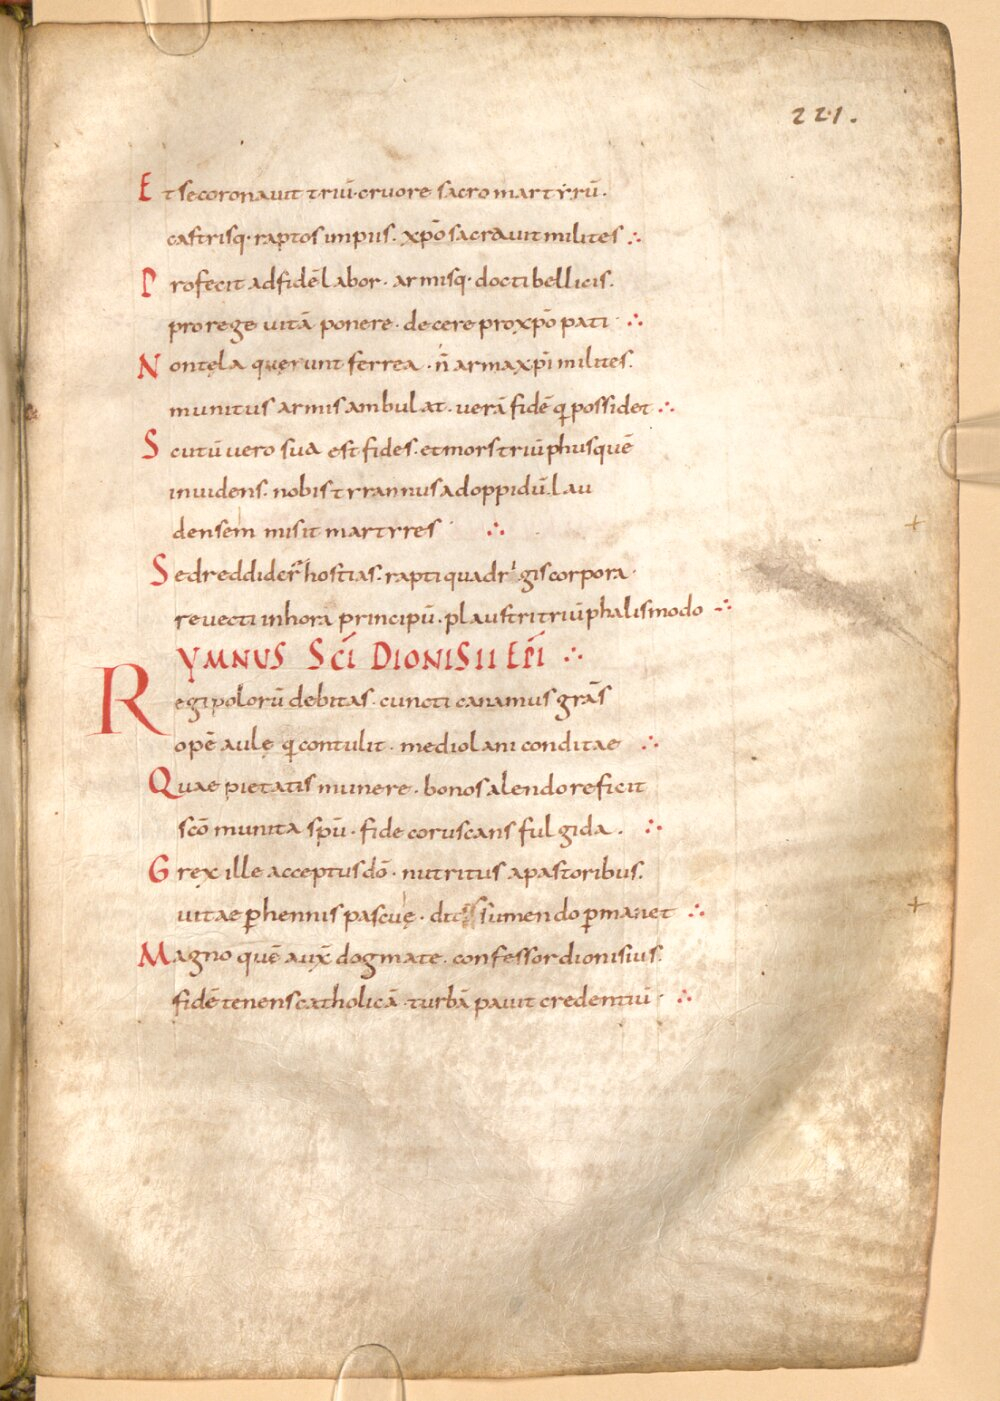 221.
Et se coronavit triū· cruore sacro martyrū·
castrisq· raptos impiis· xp̄o sacravit milites ∴
Profecit ad fidē labor· armisq· docti bellicis·
pro rege vitā ponere· decere pro xp̄o pati ∴
Non tela querunt ferrea· n̄ arma xp̄i milites·
munitus armis ambulat· verā fidē qi possidet ∴
Scutū vero sua est fides· et mors triūphus quē
invidens· nobis tyrannus ad oppidū· lau
densem misit martyres ∴
Sed reddider̄ hostias· rapti quadrigis corpora·
revecti in hora principū· plaustri triūphalis modo ∴
YMNUS SC̄I DIONISII EP̄I ∴
Regi polorū debitas· cuncti canamus grās
opē aulę qi contulit· mediolani conditae ∴
Quae pietatis munere· bonos alendo reficit
sc̄o munita sp̄u· fide coruscans fulgida· ∴
Grex ille acceptus dō· nutritus a pastoribus·
vitae p̱hennis pascuę· sumendo p̱manet ∴
Magno quē aux̄ dogmate· confessor dionisius·
fidē tenens catholicā· turbā pavit credentiū· ∴